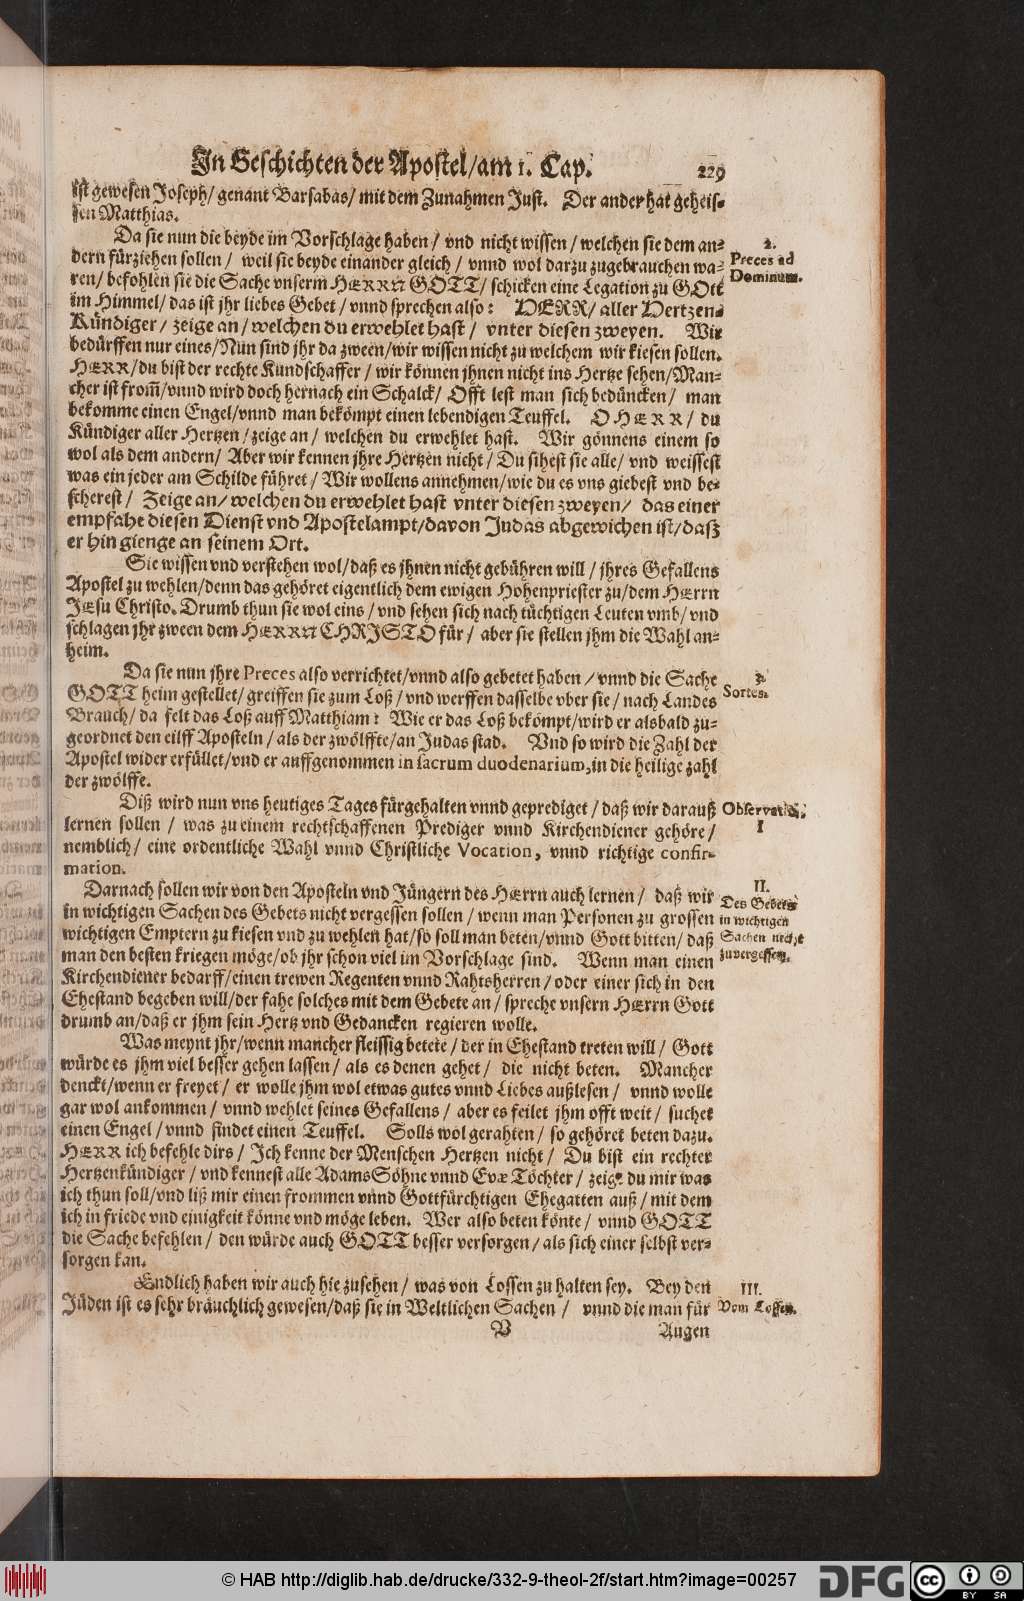 In Geschichten der Apostel/am 1. Cap. 229
ist gewesen Joseph/ genant Barsabas/ mit dem Zunahmen Just. Der ander hat geheis-
sen Matthias.
Da sie nun die beyde im Vorschlage haben/ vnd nicht wissen/ welchen sie dem an-
dern fürziehen sollen/ weil sie beyde einander gleich/ vnnd wol darzu zugebrauchen wa-
ren/ befohlen sie die Sache vnserm HERRN GOTT/ schicken eine Legation zu GOtt
im Himmel/ das ist jhr liebes Gebet/ vnnd sprechen also: HERR/ aller Hertzen-
Kündiger/ zeige an/ welchen du erwehlet hast/ vnter diesen zweyen. Wir
bedürffen nur eines/ Nun sind jhr da zween/ wir wissen nicht zu welchem wir kiesen sollen.
HERR/ du bist der rechte Kundschaffer/ wir können jhnen nicht ins Hertze sehen/ Man-
cher ist from̄/ vnnd wird doch hernach ein Schalck/ Offt lest man sich bedüncken/ man
bekomme einen Engel/ vnnd man bekömpt einen lebendigen Teuffel. O HERR/ du
Kündiger aller Hertzen/ zeige an/ welchen du erwehlet hast. Wir gönnens einem so
wol als dem andern/ Aber wir kennen jhre Hertzen nicht/ Du sihest sie alle/ vnd weissest
was ein jeder am Schilde führet/ Wir wollens annehmen/ wie du es vns giebest vnd be-
scherest/ Zeige an/ welchen du erwehlet hast vnter diesen zweyen/ das einer
empfahe diesen Dienst vnd Apostelampt/ davon Judas abgewichen ist/ daß
er hin gienge an seinem Ort.
2.
Preces ad
Dominum.
Sie wissen vnd verstehen wol/ daß es jhnen nicht gebühren will/ jhres Gefallens
Apostel zu wehlen/ denn das gehöret eigentlich dem ewigen Hohenpriester zu/ dem HErrn
JEsu Christo. Drumb thun sie wol eins/ vnd sehen sich nach tüchtigen Leuten vmb/ vnd
schlagen jhr zween dem HERRN CHRISTO für/ aber sie stellen jhm die Wahl an-
heim.
Da sie nun jhre Preces also verrichtet/ vnnd also gebetet haben/ vnnd die Sache
GOTT heim gestellet/ greiffen sie zum Loß/ vnd werffen dasselbe vber sie/ nach Landes
Brauch/ da felt das Loß auff Matthiam: Wie er das Loß bekömpt/ wird er alsbald zu-
geordnet den eilff Aposteln/ als der zwölffte/ an Judas stad. Vnd so wird die Zahl der
Apostel wider erfüllet/ vnd er auffgenommen in sacrum duodenarium, in die heilige zahl
der zwölffe.
3.
Sortes.
Diß wird nun vns heutiges Tages fürgehalten vnnd geprediget/ daß wir darauß
lernen sollen/ was zu einem rechtschaffenen Prediger vnnd Kirchendiener gehöre/
nemblich/ eine ordentliche Wahl vnnd Christliche Vocation, vnnd richtige confir-
mation.
Observatio.
I
Darnach sollen wir von den Aposteln vnd Jüngern des HErrn auch lernen/ daß wir
in wichtigen Sachen des Gebets nicht vergessen sollen/ wenn man Personen zu grossen
wichtigen Emptern zu kiesen vnd zu wehlen hat/ so soll man beten/ vnnd Gott bitten/ daß
man den besten kriegen möge/ ob jhr schon viel im Vorschlage sind. Wenn man einen
Kirchendiener bedarff/ einen trewen Regenten vnnd Rahtsherren/ oder einer sich in den
Ehestand begeben will/ der fahe solches mit dem Gebete an/ spreche vnsern HErrn Gott
drumb an/ daß er jhm sein Hertz vnd Gedancken regieren wolle.
II.
Des Gebets
in wichtigen
Sachen nicht
zuvergessen.
Was meynt jhr/ wenn mancher fleissig betete/ der in Ehestand treten will/ Gott
würde es jhm viel besser gehen lassen/ als es denen gehet/ die nicht beten. Mancher
denckt/ wenn er freyet/ er wolle jhm wol etwas gutes vnnd Liebes außlesen/ vnnd wolle
gar wol ankommen/ vnnd wehlet seines Gefallens/ aber es feilet jhm offt weit/ suchet
einen Engel/ vnnd findet einen Teuffel. Solls wol gerahten/ so gehöret beten dazu.
HERR ich befehle dirs/ Ich kenne der Menschen Hertzen nicht/ Du bist ein rechter
Hertzenkündiger/ vnd kennest alle Adams Söhne vnnd Evæ Töchter/ zeige du mir was
ich thun soll/ vnd liß mir einen frommen vnnd Gottfürchtigen Ehegatten auß/ mit dem
ich in friede vnd einigkeit könne vnd möge leben. Wer also beten könte/ vnnd GOTT
die Sache befehlen/ den würde auch GOTT besser versorgen/ als sich einer selbst ver-
sorgen kan.
Endlich haben wir auch hie zusehen/ was von Lossen zu halten sey. Bey den
Jüden ist es sehr bräuchlich gewesen/ daß sie in Weltlichen Sachen/ vnnd die man für
III.
Vom Lossen.
V Augen
© HAB http://diglib.hab.de/drucke/332-9-theol-2f/start.htm?image=00257
DFG
cc BY SA